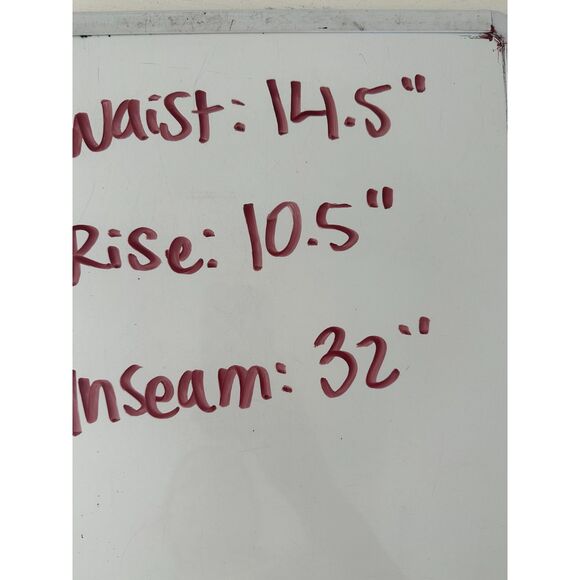 Waist: 14.5"
Rise: 10.5"
Inseam: 32"